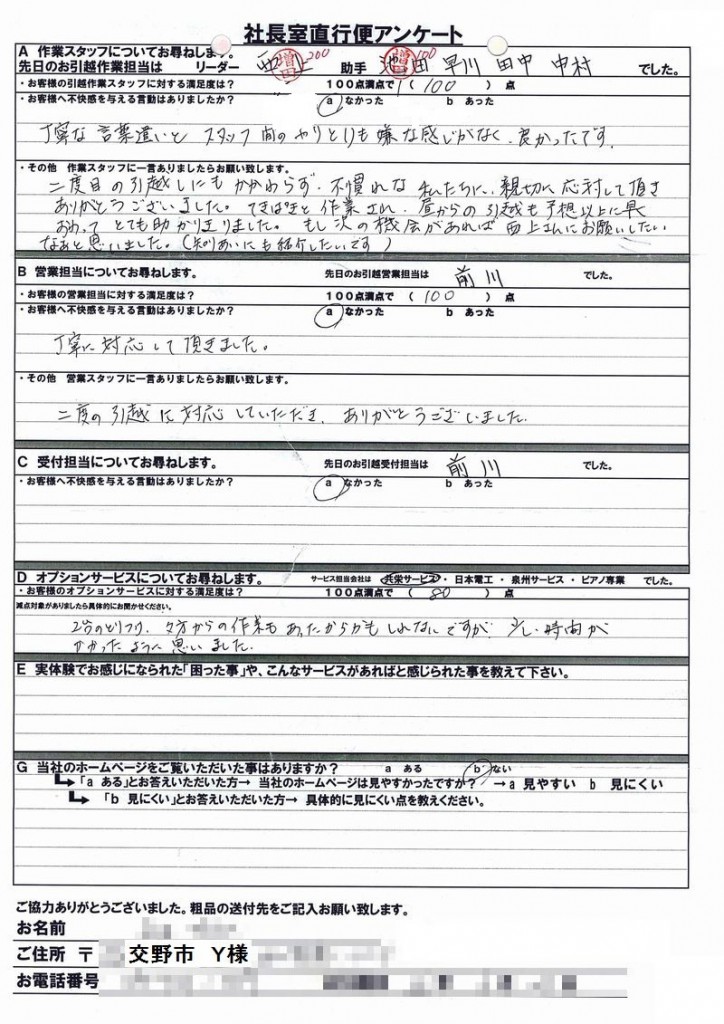 社長室直行便アンケート
A 作業スタッフについてお尋ねします。
先日のお引越作業担当は リーダー 西上 200 助手 池田 100 早川 田中 中村 でした。
・お客様の引越作業スタッフに対する満足度は? 100点満点で (100) 点
・お客様へ不快感を与える言動はありましたか? a なかった b あった
丁寧な言葉遣いと スタッフ間のやりとりも嫌な感じがなく、良かったです。
・その他 作業スタッフに一言ありましたらお願い致します。
二度目の引越しにもかかわらず、不慣れな私たちに、親切に応対して頂き
ありがとうございました。てきぱきと作業され、昼からの引越も予想以上に早く
おわって とても助かりました。もし次の機会があれば西上さんにお願いしたい
なぁと思いました。(知りあいにも紹介したいです)
B 営業担当についてお尋ねします。 先日のお引越営業担当は 前川 でした。
・お客様の営業担当に対する満足度は? 100点満点で (100) 点
・お客様へ不快感を与える言動はありましたか? a なかった b あった
丁寧に対応して頂きました。
・その他 営業スタッフに一言ありましたらお願い致します。
二度の引越に対応していただき、ありがとうございました。
C 受付担当についてお尋ねします。 先日のお引越受付担当は 前川 でした。
・お客様へ不快感を与える言動はありましたか? a なかった b あった
D オプションサービスについてお尋ねします。 サービス担当会社は 共栄サービス・日本電工・泉州サービス・ピアノ専業 でした。
・お客様のオプションサービスに対する満足度は? 100点満点で (80) 点
減点対象がありましたら具体的にお聞かせください。
2台のとりつけ、夕方からの作業もあったからかもしれないですが、少し時間が
かかったように思いました。
E 実体験でお感じになられた「困った事」や、こんなサービスがあればと感じられた事を教えて下さい。
G 当社のホームページをご覧いただいた事はありますか? a ある b ない
「a ある」とお答えいただいた方→ 当社のホームページは見やすかったですか? →a 見やすい b 見にくい
「b 見にくい」とお答えいただいた方→ 具体的に見にくい点を教えください。
ご協力ありがとうございました。粗品の送付先をご記入お願い致します。
お名前
ご住所 〒 交野市 Y様
お電話番号